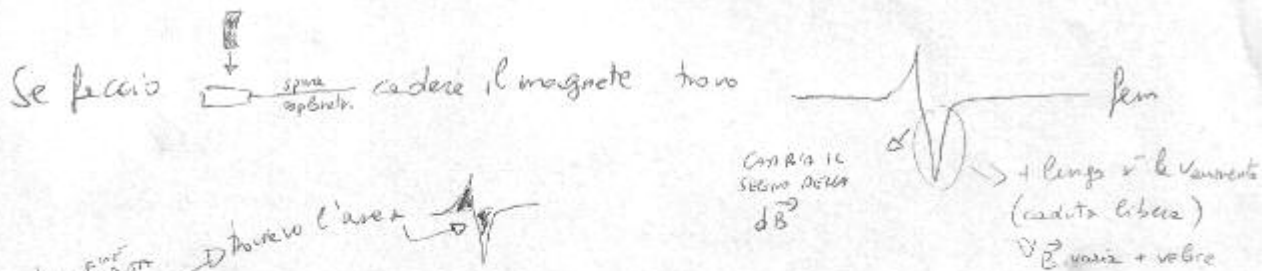 Se faccio spira cadere il magnete trovo fem
CAMBIA IL
SEGNO DELLA
dB
+ lunga
(caduta libera)
B varia + veloce
trovavo l'area